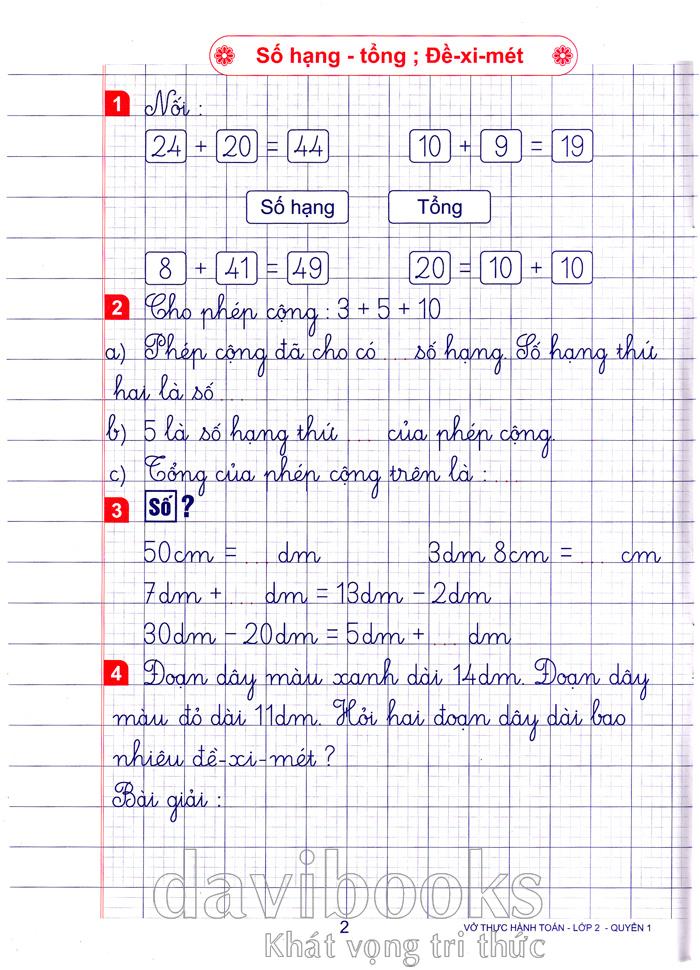 Số hạng - tổng ; Đề-xi-mét
1 Nối :
24 + 20 = 44 10 + 9 = 19
Số hạng Tổng
8 + 41 = 49 20 = 10 + 10
2 Cho phép cộng : 3 + 5 + 10
a) Phép cộng đã cho có ... số hạng. Số hạng thứ
hai là số ...
b) 5 là số hạng thứ ... của phép cộng.
c) Tổng của phép cộng trên là : ...
3 Số ?
50cm = ... dm 3dm 8cm = ... cm
7dm + ... dm = 13dm - 2dm
30dm - 20dm = 5dm + ... dm
4 Đoạn dây màu xanh dài 14dm. Đoạn dây
màu đỏ dài 11dm. Hỏi hai đoạn dây dài bao
nhiêu đề-xi-mét ?
Bài giải :
davibooks
2 VỞ THỰC HÀNH TOÁN - LỚP 2 - QUYỂN 1
Khát vọng tri thức